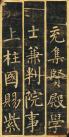 充集賢殿學
士兼判院事
上柱國賜紫